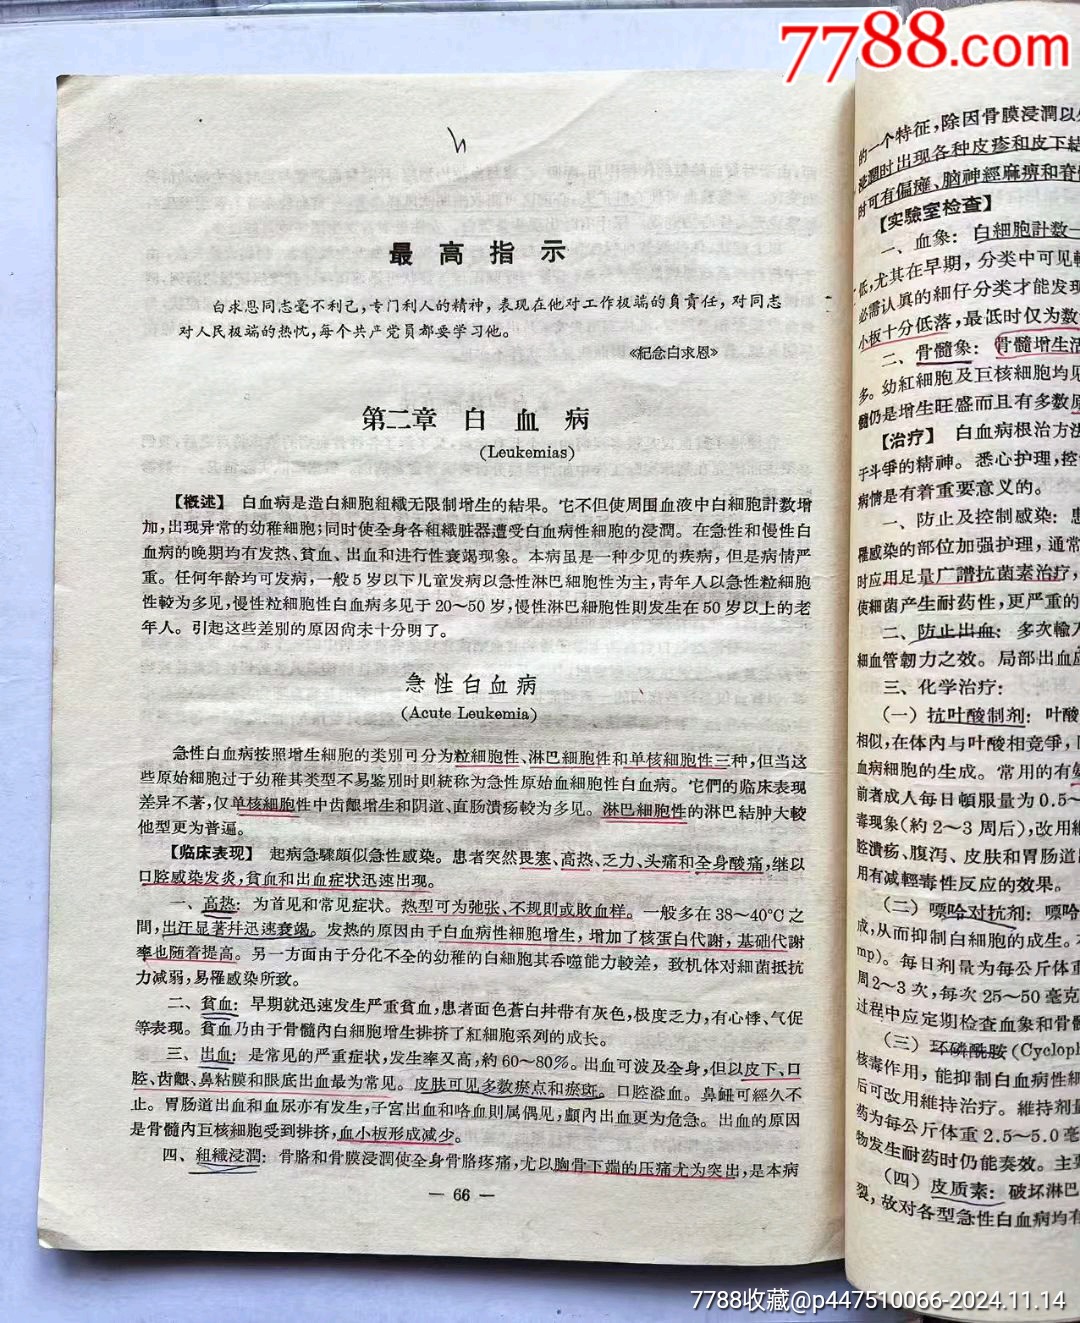 7788.com
最高指示
白求恩同志毫不利己,专门利人的精神,表现在他对工作极端的負責任,对同志
对人民极端的热忱,每个共产党員都要学习他。
《紀念白求恩》
第二章 白血病
(Leukemias)
【概述】 白血病是造白細胞組織无限制增生的結果。它不但使周围血液中白細胞計数增
加,出现异常的幼稚細胞;同时使全身各組織脏器遭受白血病性細胞的浸潤。在急性和慢性白
血病的晚期均有发热、貧血、出血和进行性衰竭现象。本病虽是一种少见的疾病,但是病情严
重。任何年龄均可发病,一般5岁以下儿童发病以急性淋巴細胞性为主,青年人以急性粒細胞
性較为多见,慢性粒細胞性白血病多见于20～50岁,慢性淋巴細胞性則发生在50岁以上的老
年人。引起这些差別的原因尙未十分明了。
急性白血病
(Acute Leukemia)
急性白血病按照增生細胞的类别可分为粒細胞性、淋巴細胞性和单核細胞性三种,但当这
些原始細胞过于幼稚其类型不易鉴别时則統称为急性原始血細胞性白血病。它們的临床表现
差异不著,仅单核細胞性中齿齦增生和阴道、直肠潰疡較为多见。淋巴細胞性的淋巴結肿大較
他型更为普遍。
【临床表现】 起病急驟頗似急性感染。患者突然畏寒、高热、乏力、头痛和全身酸痛,継以
口腔感染发炎,貧血和出血症状迅速出现。
一、高热: 为首见和常见症状。热型可为弛张、不規則或敗血样。一般多在38～40°C之
間,出汗显著幷迅速衰竭。发热的原因由于白血病性細胞增生,增加了核蛋白代謝,基础代謝
率也随着提高。另一方面由于分化不全的幼稚的白細胞其吞噬能力較差,致机体对細菌抵抗
力减弱,易罹感染所致。
二、貧血: 早期就迅速发生严重貧血,患者面色蒼白幷带有灰色,极度乏力,有心悸、气促
等表现。貧血乃由于骨髓內白細胞增生排挤了紅細胞系列的成长。
三、出血: 是常见的严重症状,发生率又高,約60～80%。出血可波及全身,但以皮下、口
腔、齿齦、鼻粘膜和眼底出血最为常见。皮肤可见多数瘀点和瘀斑。口腔溢血。鼻衄可經久不
止。胃肠道出血和血尿亦有发生,子宮出血和咯血則属偶见,顱內出血更为危急。出血的原因
是骨髓內巨核細胞受到排挤,血小板形成减少。
四、組織浸潤: 骨胳和骨膜浸潤使全身骨胳疼痛,尤以胸骨下端的压痛尤为突出,是本病
— 66 —
的一个特征,除因骨膜浸潤以
浸潤时出现各种皮疹和皮下結
时可有偏癱、脑神經麻痹和脊
【实驗室检查】
一、血象: 白細胞計数一
低,尤其在早期,分类中可见
必需认眞的細仔分类才能发现
小板十分低落,最低时仅为数
二、骨髓象: 骨髓增生活
多。幼紅細胞及巨核細胞均见
髓仍是增生旺盛而且有多数
【治疗】 白血病根治方法
于斗爭的精神。悉心护理,控
病情是有着重要意义的。
一、防止及控制感染: 患
罹感染的部位加强护理,通常
时应用足量广譜抗菌素治疗,
使細菌产生耐药性,更严重的
二、防止出血: 多次輸
細血管韌力之效。局部出血
三、化学治疗:
(一) 抗叶酸制剂: 叶酸
相似,在体內与叶酸相竞爭,
血病細胞的生成。常用的有
前者成人每日頓服量为0.5～
毒现象(約2～3周后),改用
腔潰疡、腹泻、皮肤和胃肠道
用有减輕毒性反应的效果。
(二) 嘌呤对抗剂: 嘌呤
成,从而抑制白細胞的成生。
mp)。每日剂量为每公斤体重
周2～3次,每次25～50毫克
过程中应定期检查血象和骨
(三) 环磷酰胺(Cyclop
核毒作用,能抑制白血病性細
后可改用維持治疗。維持剂
药为每公斤体重2.5～5.0毫
物发生耐药时仍能奏效。主
(四) 皮质素: 破坏淋巴
裂,故对各型急性白血病均有
7788收藏@p447510066-2024.11.14